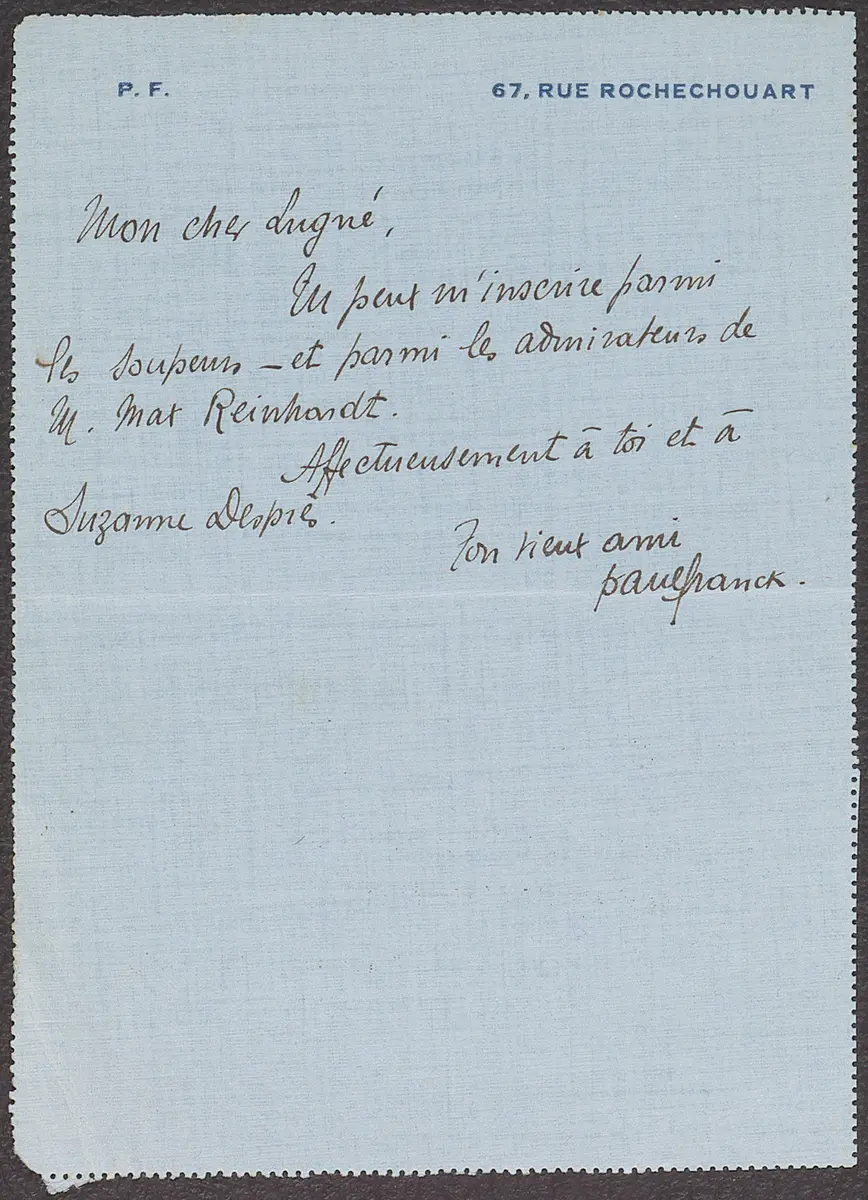 P. F.
67, RUE ROCHECHOUART
Mon cher Lugné,
Tu peux m'inscrire parmi
les soupeurs – et parmi les admirateurs de
M. Max Reinhardt.
Affectueusement à toi et à
Suzanne Desprès.
Ton vieux ami
paul franck.